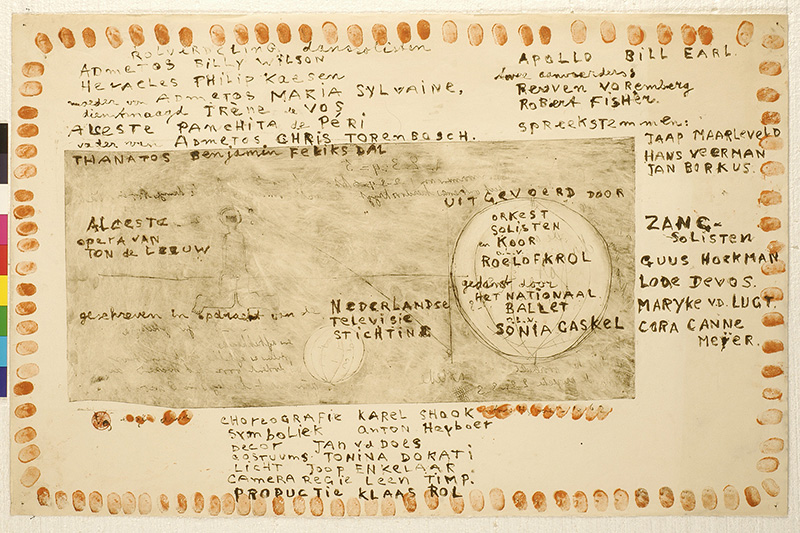 Rolverdeling danssolisten
ADMETOS BILLY WILSON
HERACLES PHILIP KAESEN
moeder van ADMETOS MARIA SYLVAINE,
dienstmaagd IRÈNE de VOS
ALCESTE PANCHITA de PÉRI
vader van ADMETOS, CHRIS TORENBOSCH.
THANATOS Benjamin FELIKSDAL
APOLLO BILL EARL.
twee aanvoerders;
REUVEN VOREMBERG
ROBERT FISHER.
SPREEKSTEMMEN:
JAAP MAARLEVELD
HANS VEERMAN
JAN BORKUS.
ALCESTE
opera VAN
TON de LEEUW
geschreven in opdracht van de
NEDERLANDSE
TELEVISIE
STICHTING
UITGEVOERD DOOR
ORKEST
SOLISTEN
en KOOR
o.l.v.
ROELOF KROL
gedanst door
HET NATIONAAL
BALLET
o.l.v.
SONIA GASKEL
ZANG-
SOLISTEN
GUUS HOEKMAN
LODE DEVOS.
MARYKE V.D. LUGT.
CORA CANNE
MEIJER.
CHOREOGRAFIE KAREL SHOOK
SYMBOLIEK ANTON HEYBOER
DECOR JAN vd DOES
COSTUUMS TONINA DORATI
LICHT JOOP ENKELAAR
CAMERA REGIE LEEN TIMP.
PRODUCTIE KLAAS ROL